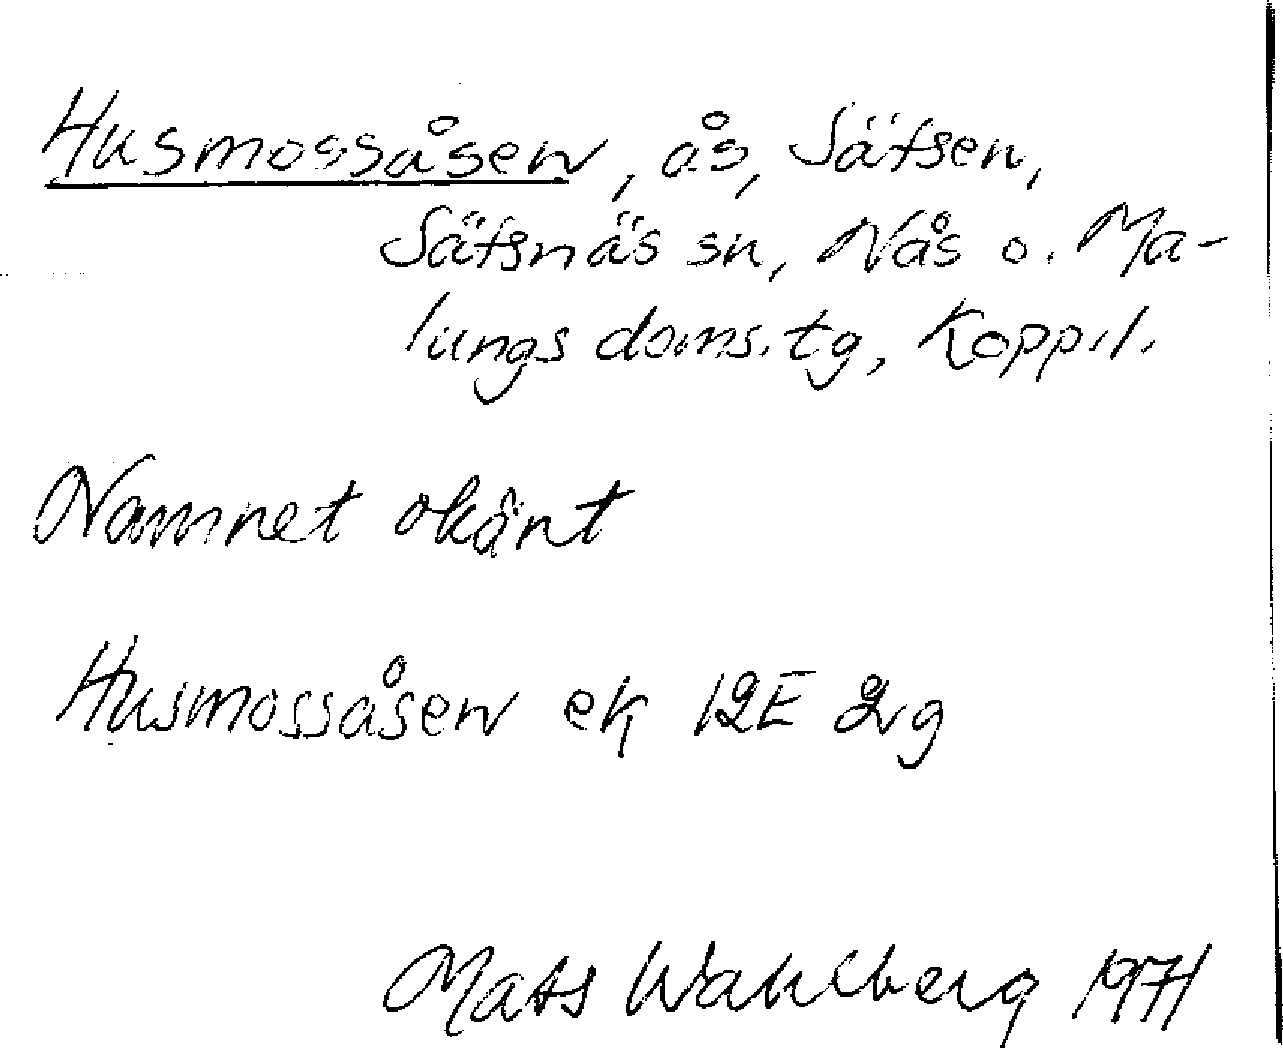 Husmossåsen, ås, Säfsen,
Säfsnäs sn, Nås o. Ma-
lungs doms. tg, Kopp. l.
Namnet okänt
Husmossåsen ek 12E 2vg
Mats Wahlberg 1971